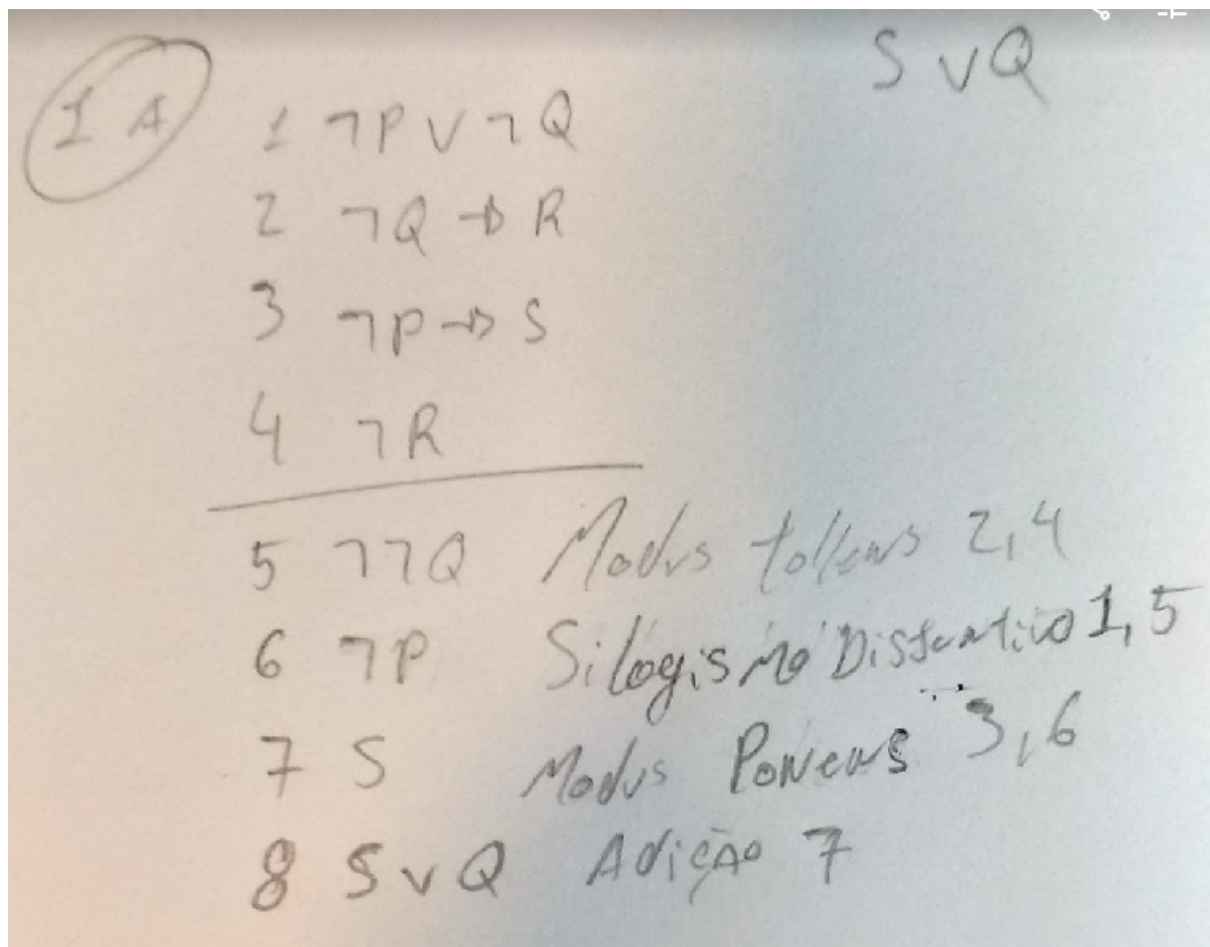 S ∨ Q
1 A
1 ¬P ∨ ¬Q
2 ¬Q → R
3 ¬P → S
4 ¬R
5 ¬¬Q Modus tollens 2,4
6 ¬P Silogismo Disjuntivo 1,5
7 S Modus Ponens 3,6
8 S ∨ Q Adição 7